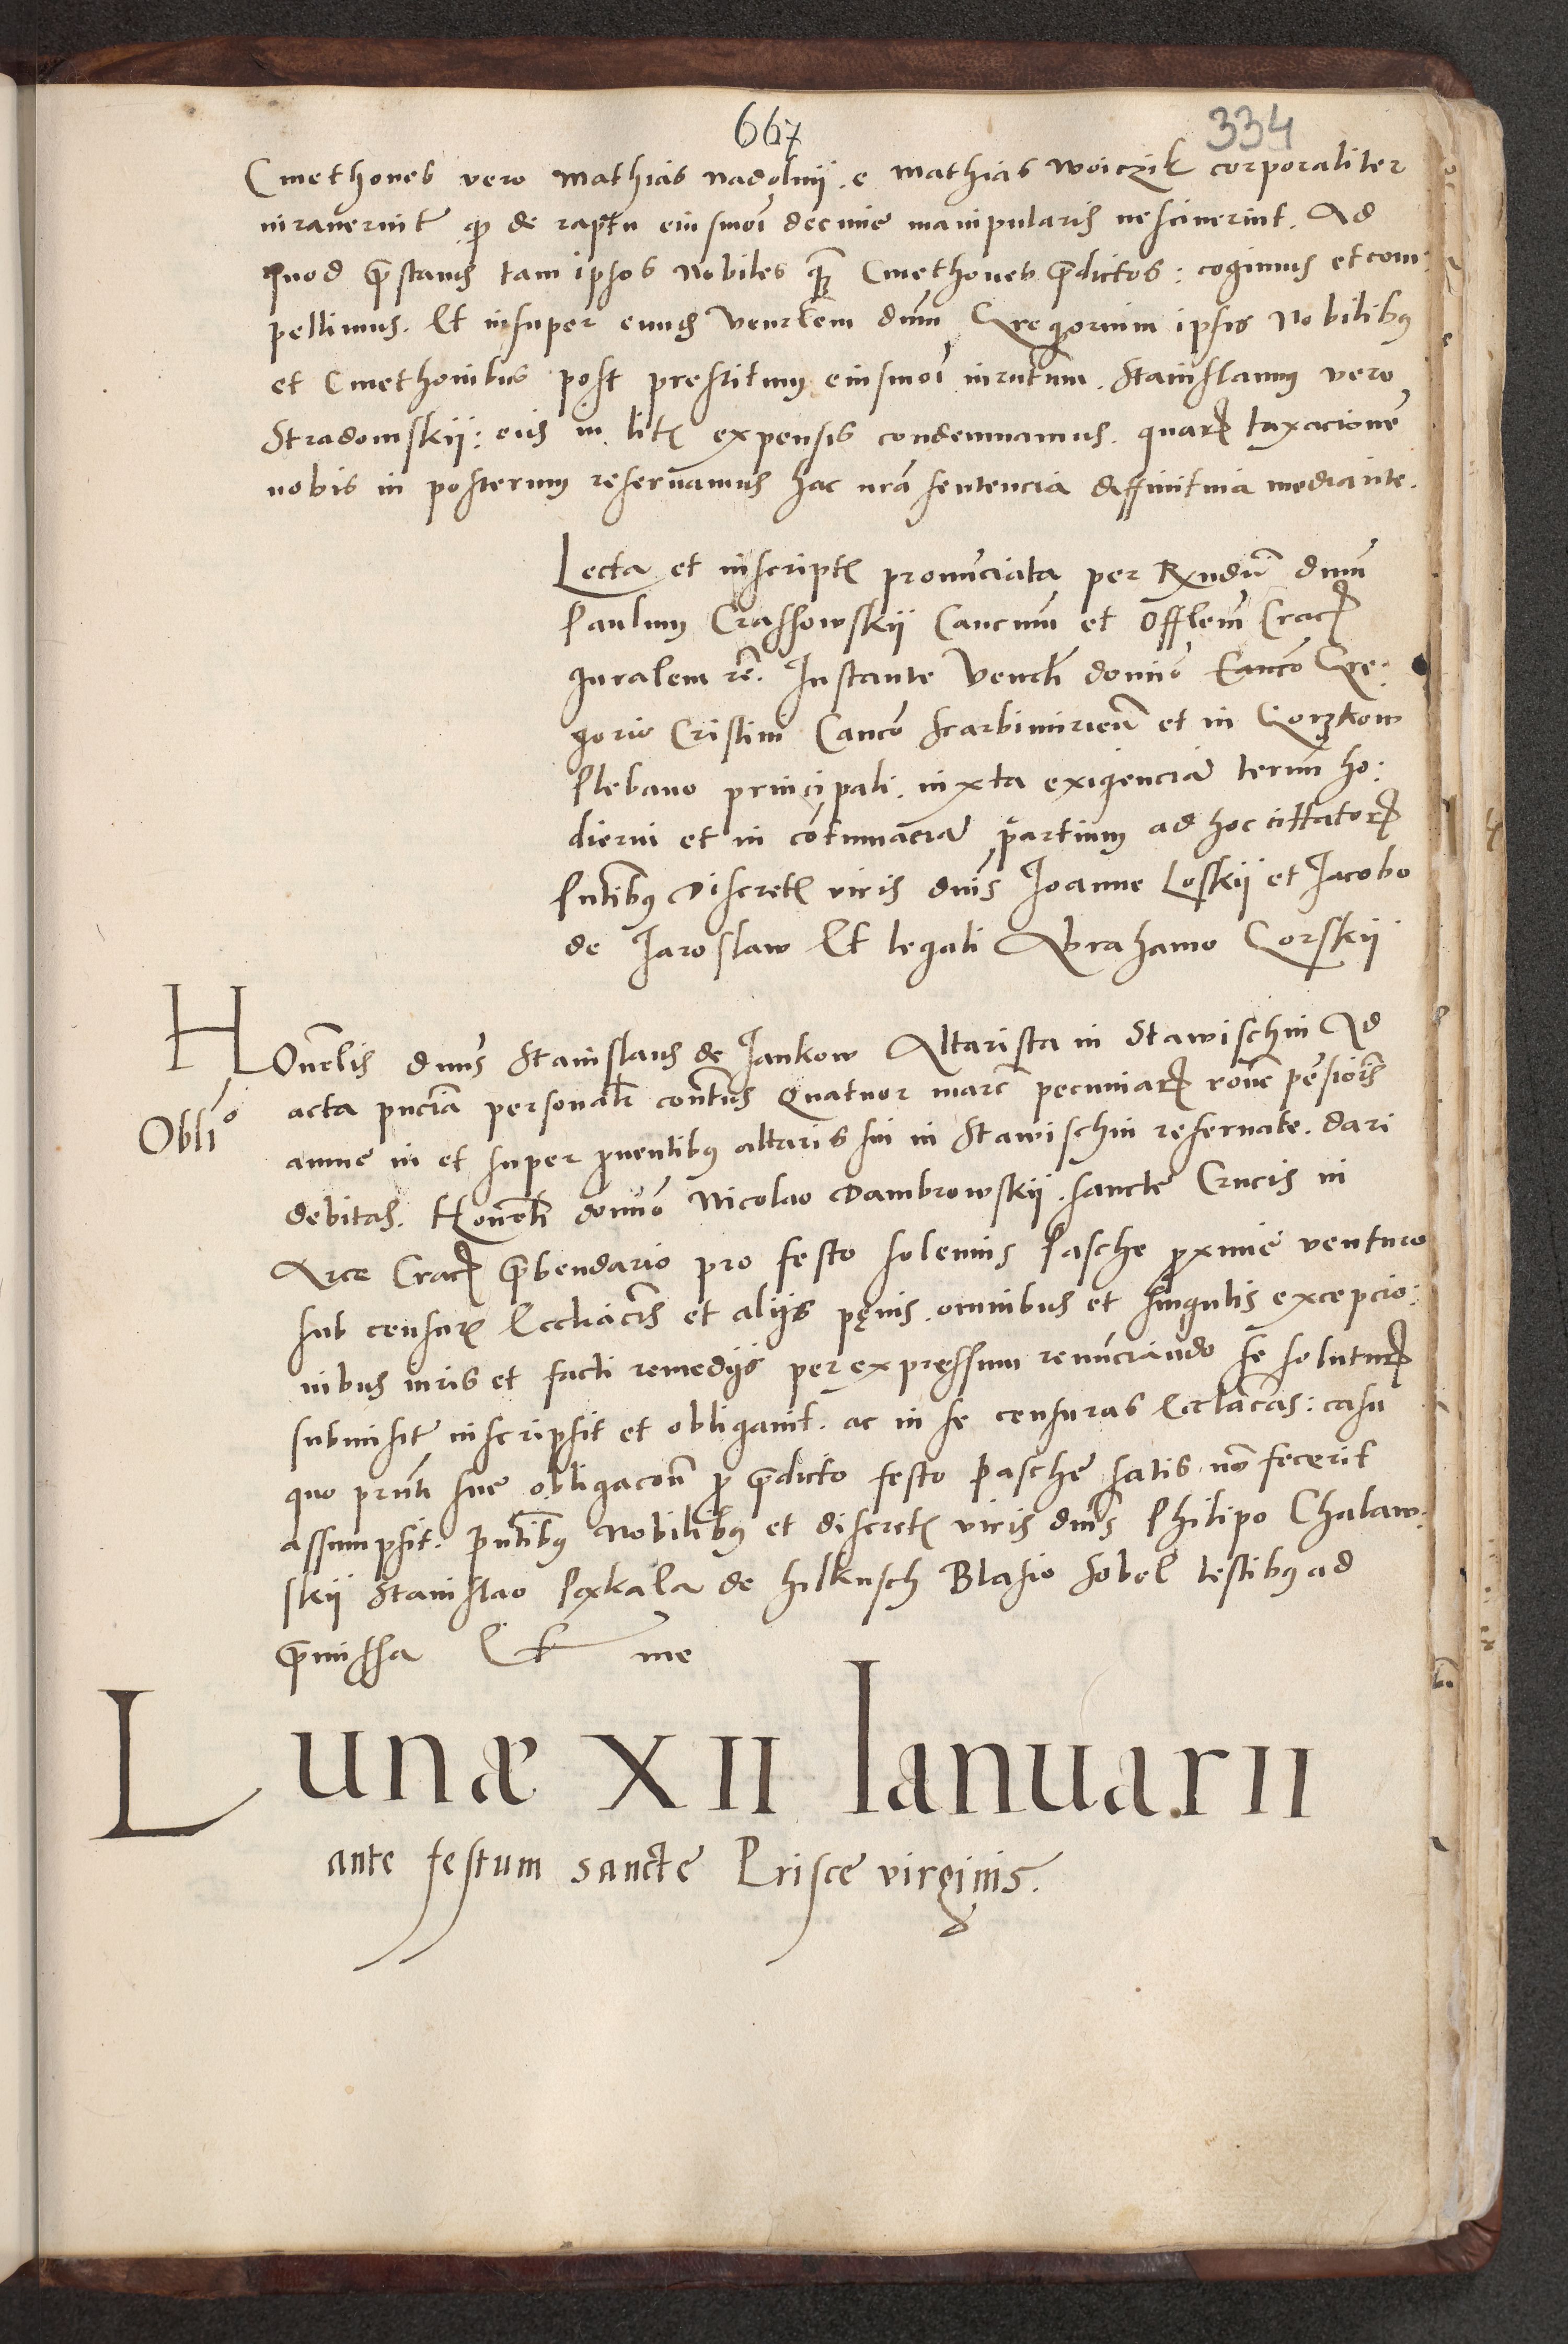 667
334
Cmethones vero Mathias nadolnÿ . e Mathias Woiczik corporaliter
iuraverint ꝙ de raptu eiusmoi decime manipularis nesciverint. Ad
quod p̄standū tam ipsos Nobiles q̄ȝ Cmethones p̄dictos : cogimus et com:
pellimus. Et insuper eundē Venrlem dnm Gregorium ipsis Nobilibꝰ
et Cmethonibus post prestitum eiusmoi iurūtum. Stanislaum vero
Stradomskÿ : eius in litꝭ expensis condemnamus. quarꝝ taxacionē
nobis in posterum reservamus hac nrā sentencia diffinitiva mediante.
Lecta et inscriptꝭ pronūciata per Rxndū dnm
Paulum Crassowskÿ Cancnm et Offlem Cracꝭ
gnralem rc̄. Instante Venrli domīo Cancō Gre:
gorio Cristini Cancō Scarbimirieñ et in Gorzkow
Plebano principali. iuxta exigenciā termī ho:
dierni et in cōtumaciā partium ad hoc cittatorꝝ
Pntibꝰ discretꝭ viris dnīs Joanne Loskÿ et Jacobo
de Jaroslaw Et legali Abrahamo Gorskÿ
HOnrlis dnūs Stanislaus de Jankow Altarista in Stawischin Ad
Obliᵒ
acta pncīa personalr̄ contētus Quatuor marc̄ pecuniarꝝ rōne pēsionis
annue in et super pventibꝰ altaris sui in Stawischin reservate. dari
debitas. Honrli domīo Nicolao Dambrowskÿ . sancte Crucis in
Arce Cracꝭ p̄bendario pro festo solennis Pasche proxime venturo
sub censurꝭ Eccliācis et alijs pęnis . omnibus et singulis excepcio:
nibus iuris et facti remedijs per expressum renūciando se soluturꝝ
submisit inscripsit et obligavit. ac in se censuras Ecclācas : casu
quo prn̄ti sue obligacoñ p̄ p̄dicto festo Pasche satis nō fecerit
assumpsit. Pntibꝰ Nobilibꝰ et discretꝭ viris dnīs Philipo Chalaw:
skÿ Stanislao Pxkala de hilkusch Blasio Sobol testibꝰ ad
p̄missa Et me
Lunæ XII Ianuarii
ante festum sancte Prisce virginis.